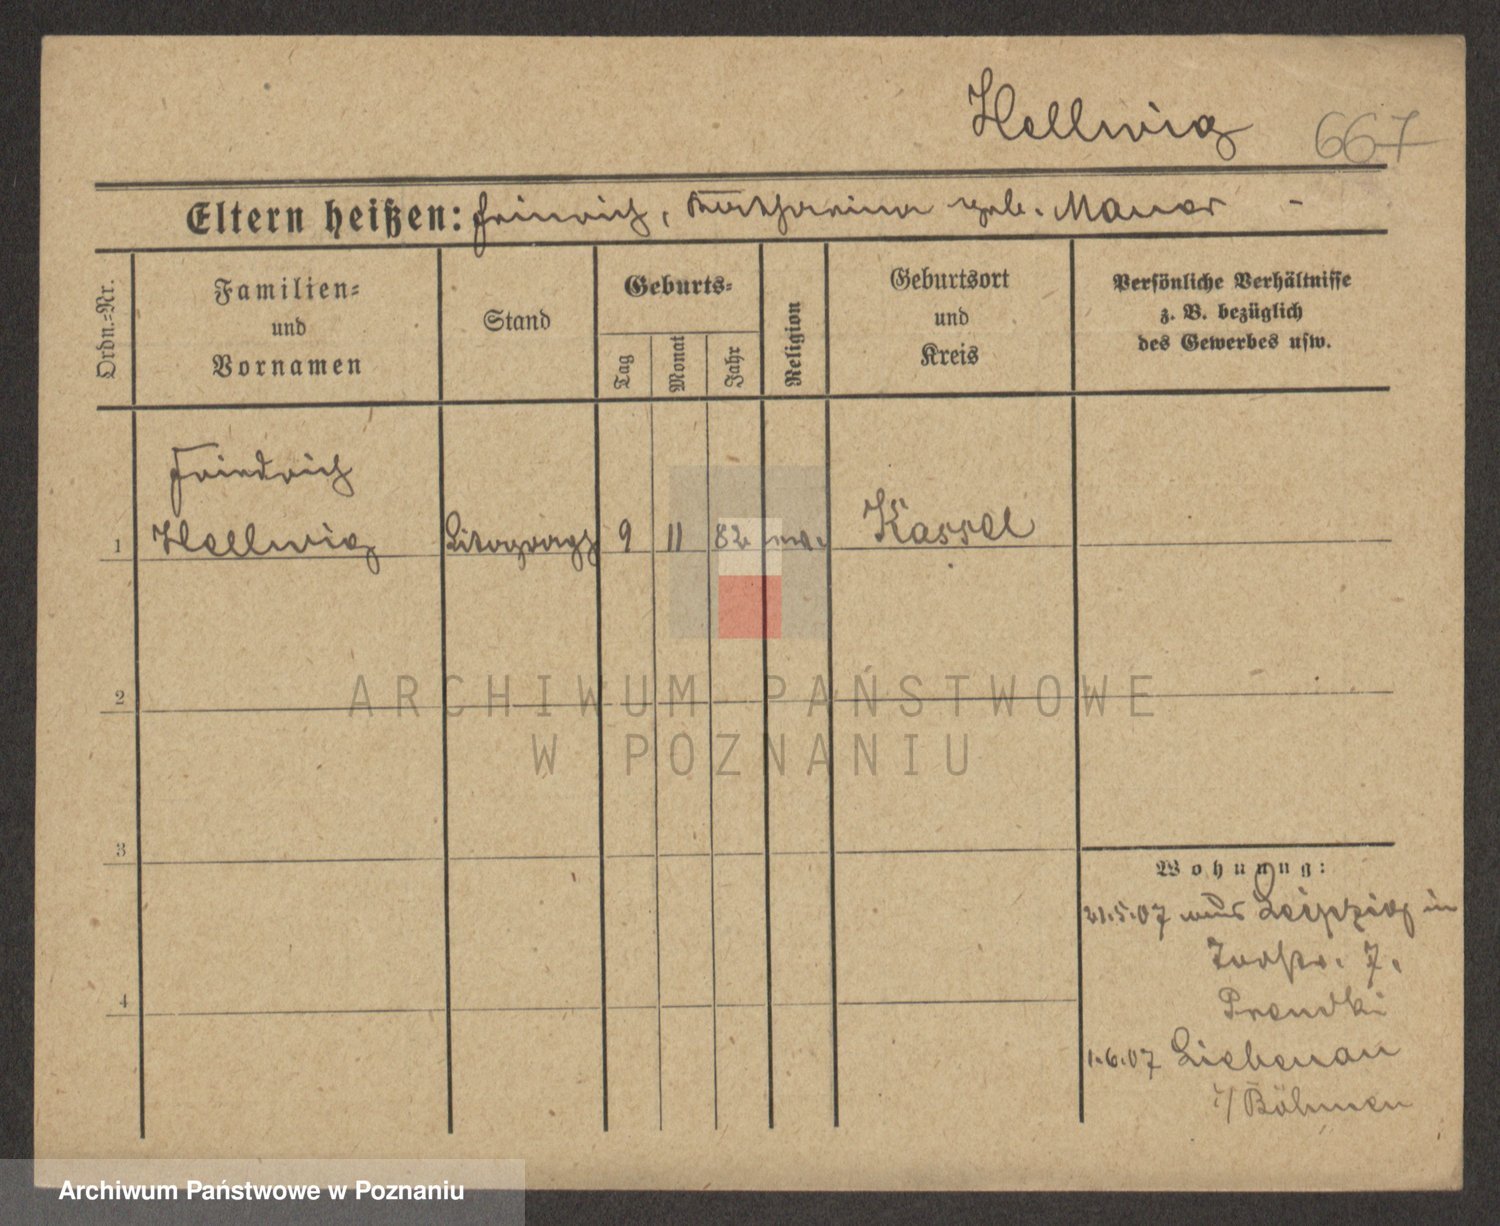 Hellwig 667
Eltern heißen: Heinrich, Katharina geb. Mauer -
Ordn.-Nr.
Familien-
und
Vornamen
Stand
Geburts-
Tag
Monat
Jahr
Religion
Geburtsort
und
Kreis
Persönliche Verhältnisse
z. B. bezüglich
des Gewerbes usw.
Friedrich
1 Hellwig Litograph 9 11 82 ev. Kassel
2
3
4
Wohnung:
21.5.07 aus Leipzig in
7.
Prendki
1.6.07 Liebenau
i/Böhmen
ARCHIWUM PAŃSTWOWE
W POZNANIU
Archiwum Państwowe w Poznaniu